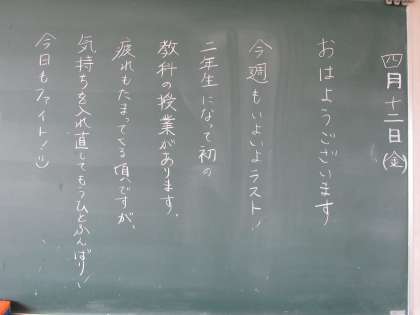 四月十二日(金)
おはようございます
今週もいよいよラスト!
二年生になって初の
教科の授業があります。
疲れもたまってくる頃ですが、
気持ちを入れ直してもうひとふんばり!
今日もファイト!!:)